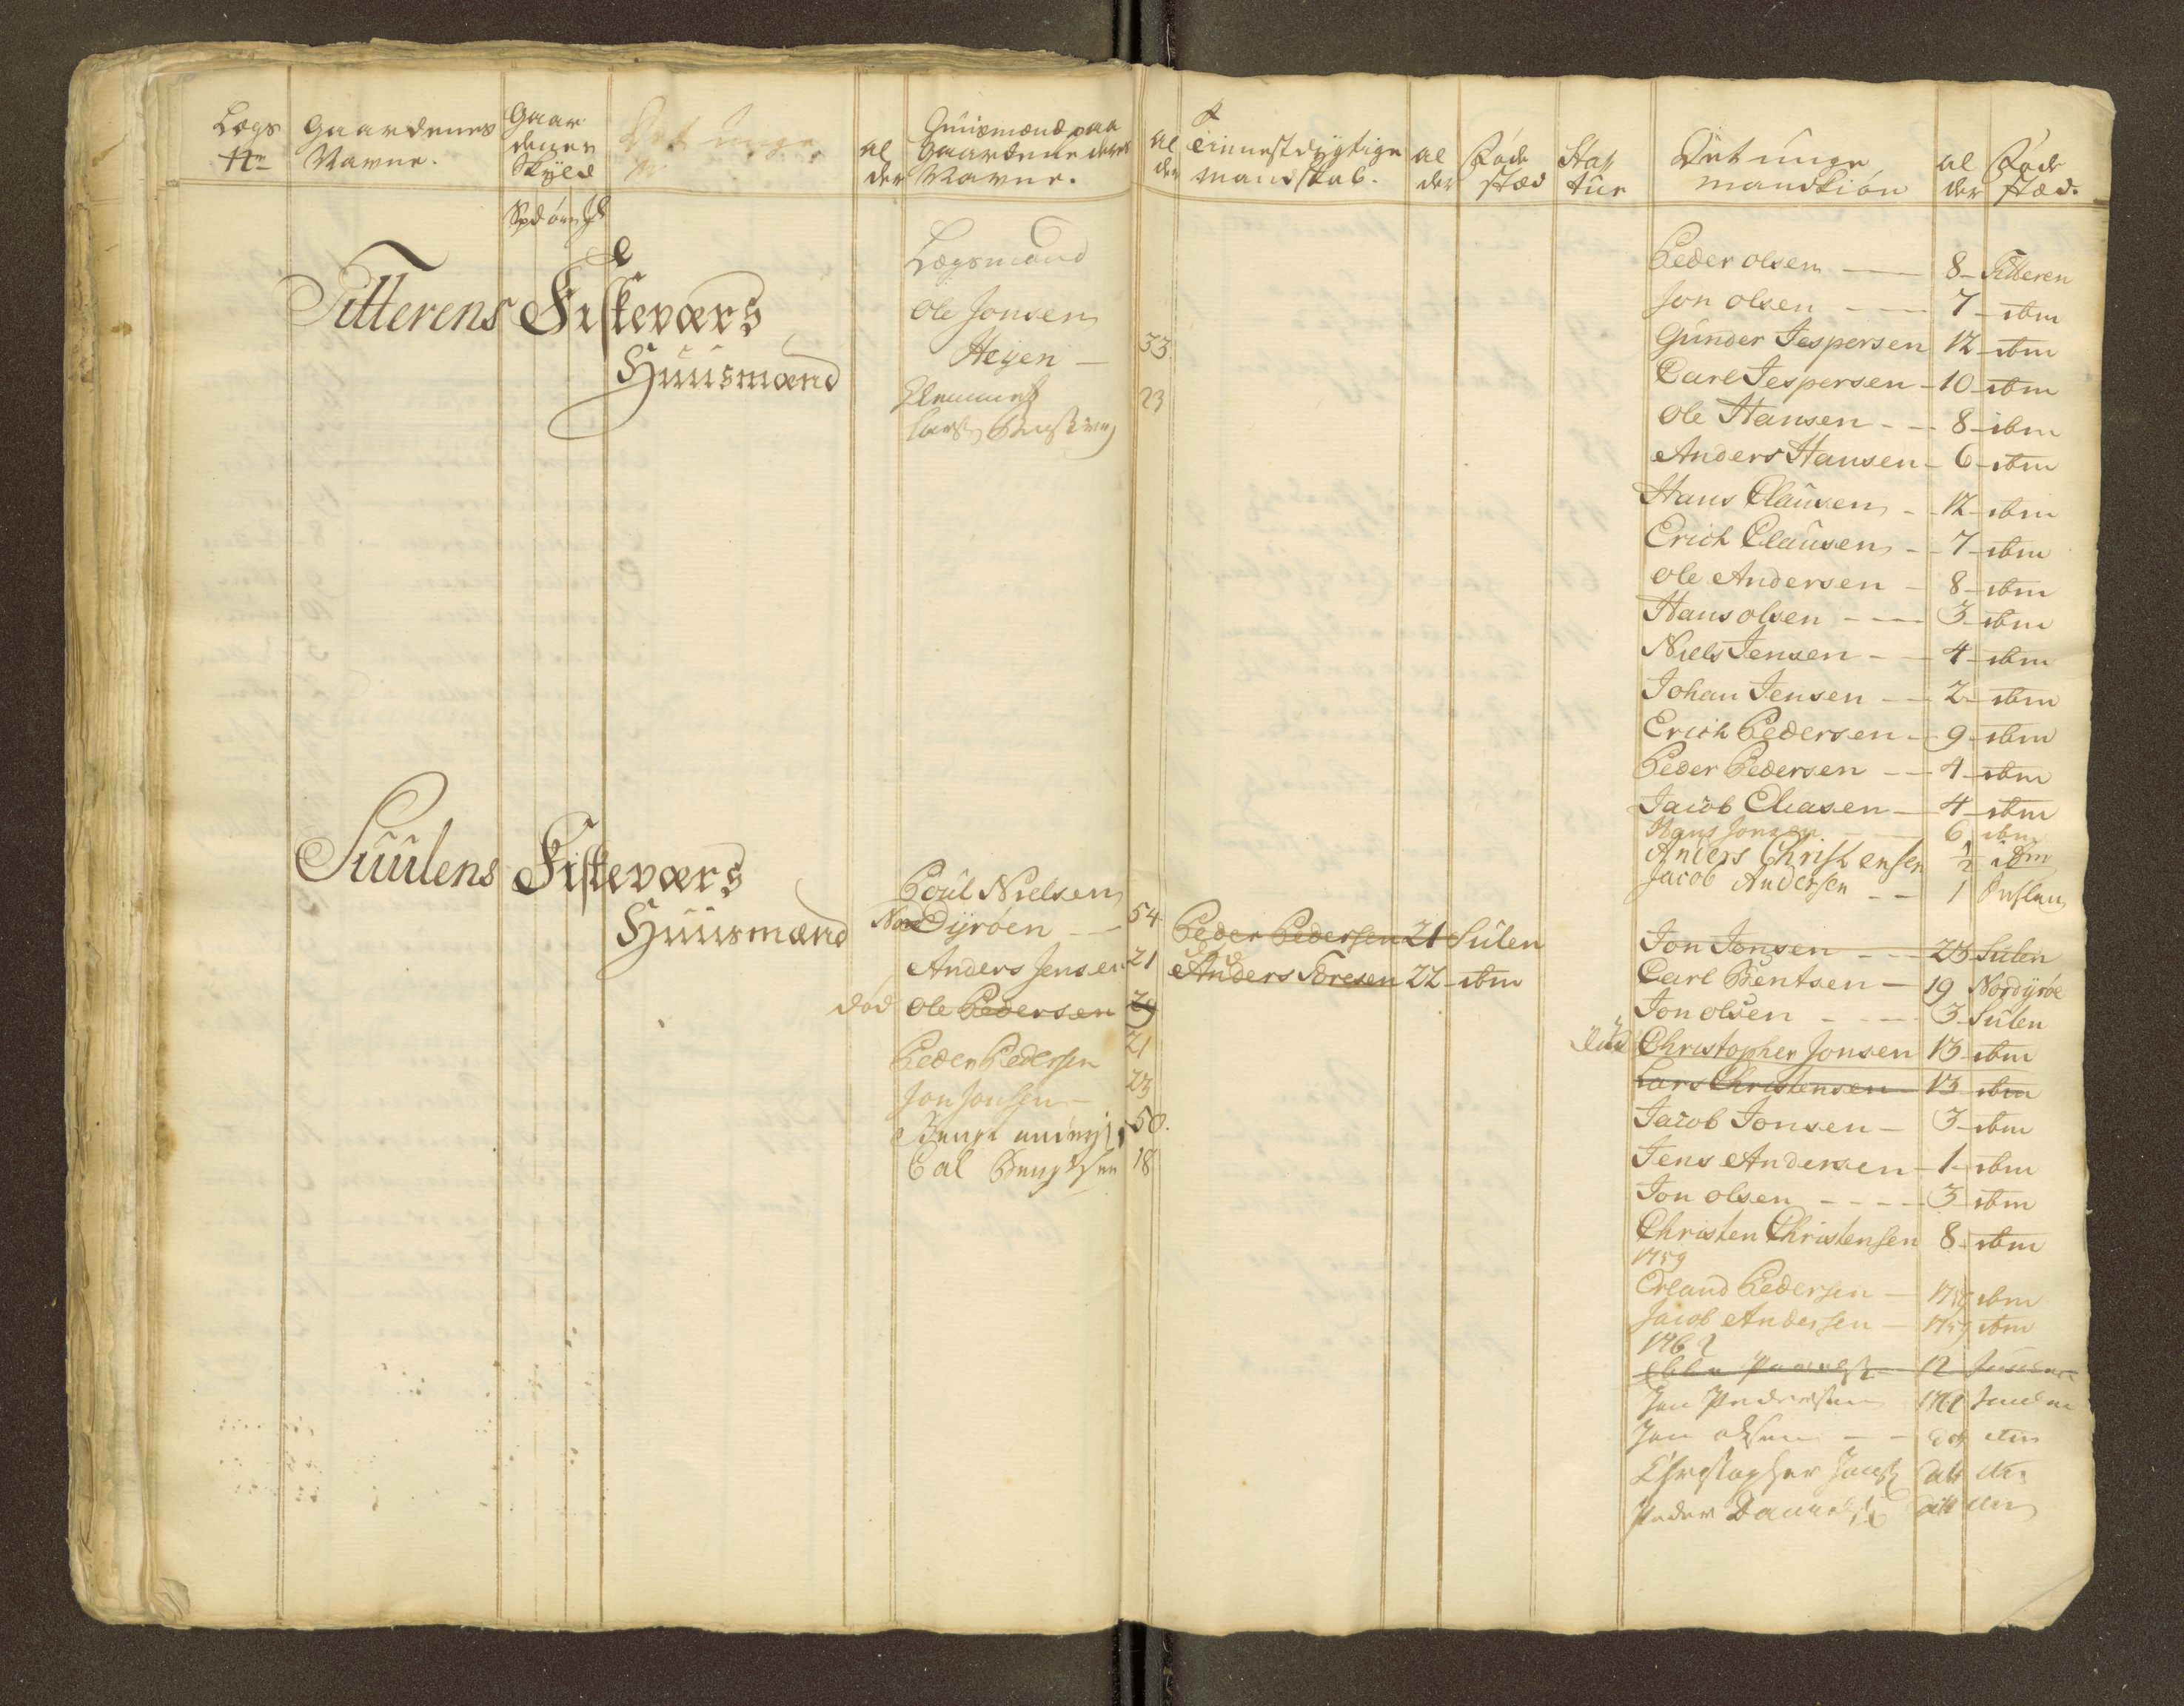 Lægs
No
Gaardenes
Navne.
Gaar
denes
Skyld
Det unge
al
der
Huusmænd paa
Gaardene deres
Navne.
al
der
Tiennestdygtige
mandskab.
al
der
Føde
stæd
Stat
tur
Det unge
mandkiön
al
der
Føde
stæd.
Titterens Fiskeværs
Huusmænd
Lægsmand
Ole Jonsen
Heyen — 33
23
Peder olsen — 8 - Titteren
Jon olsen — 7 - ibm
Gunder Jespersen 12 - ibm
Carl Jespersen - 10 - ibm
Ole Hansen - 8 - ibm
Anders Hansen - 6 - ibm
Hans Clausen - 12 - ibm
Erich Clausen - 7 - ibm
Ole Andersen - 8 - ibm
Hans olsen - 3 - ibm
Niels Jensen - 4 - ibm
Johan Jensen - 2 - ibm
Erich Pedersen - 9 - ibm
Peder Pedersen - 4 - ibm
Jacob Eliasen - 4 - ibm
Hans Jonsen - 6 ibm
Anders Christensen 1/2 ibm
Jacob Andersen - 1
Suulens Fiskeværs
Huusmænd
Poul Nielsen
Nordyröen — 54
Anders Jensen 21
död Ole Pedersen 29
Peder Pedersen 21
Jon Jonsen - 23
Bengt 50.
Cal Bengtsen 18
Peder Pedersen 21 Sulen
Anders Toresen 22 - ibm
Jon Jonsen - 23 - Sulen
Carl Bentsen - 19 Nordyröe
Jon olsen - 3 - Sulen
död Christopher Jonsen 13 - ibm
Lars Christensen 13 - ibm
Jacob Jonsen - 3 - ibm
Jens Andersen - 1 - ibm
Jon olsen - 3 ibm
Christen Christensen 8 - ibm
1759
Erland Pedersen - 1758 ibm
Jacob Andersen - 1759 ibm
1762
12
Jon Pedersen 1761
Jon olsen - - do ibm
Christopher
Peder